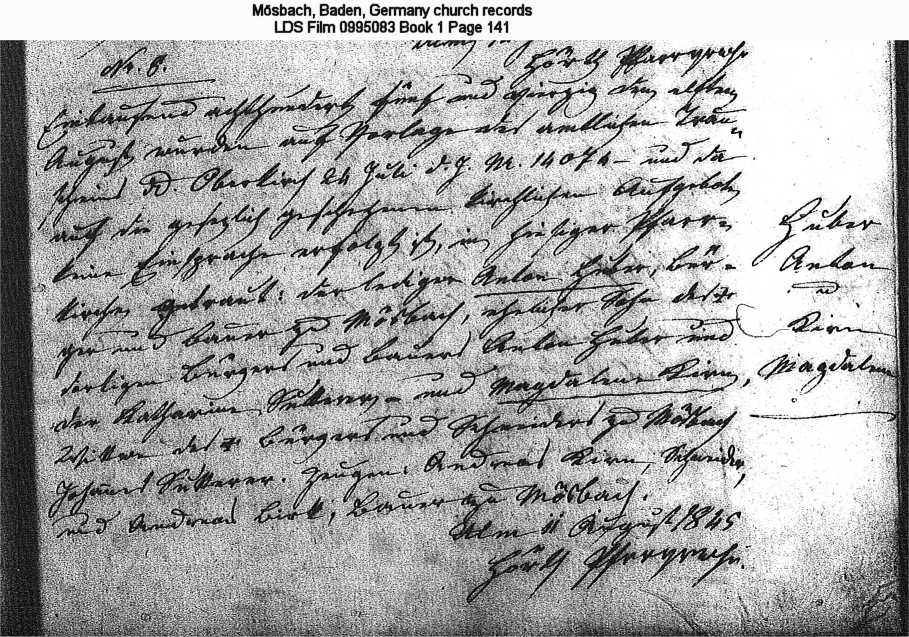 Mösbach, Baden, Germany church records
LDS Film 0995083 Book 1 Page 141
Hörth Pfarrverw.
Nr. 8.
Eintausend achthundert fünf und vierzig den elften
August wurden auf Vorlage des amtlichen Trau-
scheins D. Oberkirch 24 Juli d. J. N. 14074 – und da
auf die gesezlich geschehenen kirchlichen Aufgebote
keine Einsprache erfolgt ist, in hiesiger Pfarr-
kirche getraut: der ledige Anton Huber, Bür-
ger und Bauer zu Mösbach, ehelicher Sohn des
dortigen Bürgers und Bauers Anton Huber und
der Katharina Sutterer – und Magdalena Kirn,
Wittwe des Bürgers und Schneiders zu Mösbach
Johannes Sutterer. Zeugen: Andreas Kirn, Schneider,
und Andreas Birk, Bauer zu Mösbach.
Ulm 11 August 1845
Hörth Pfarrverw.
Huber
Anton
u
Kirn
Magdalena